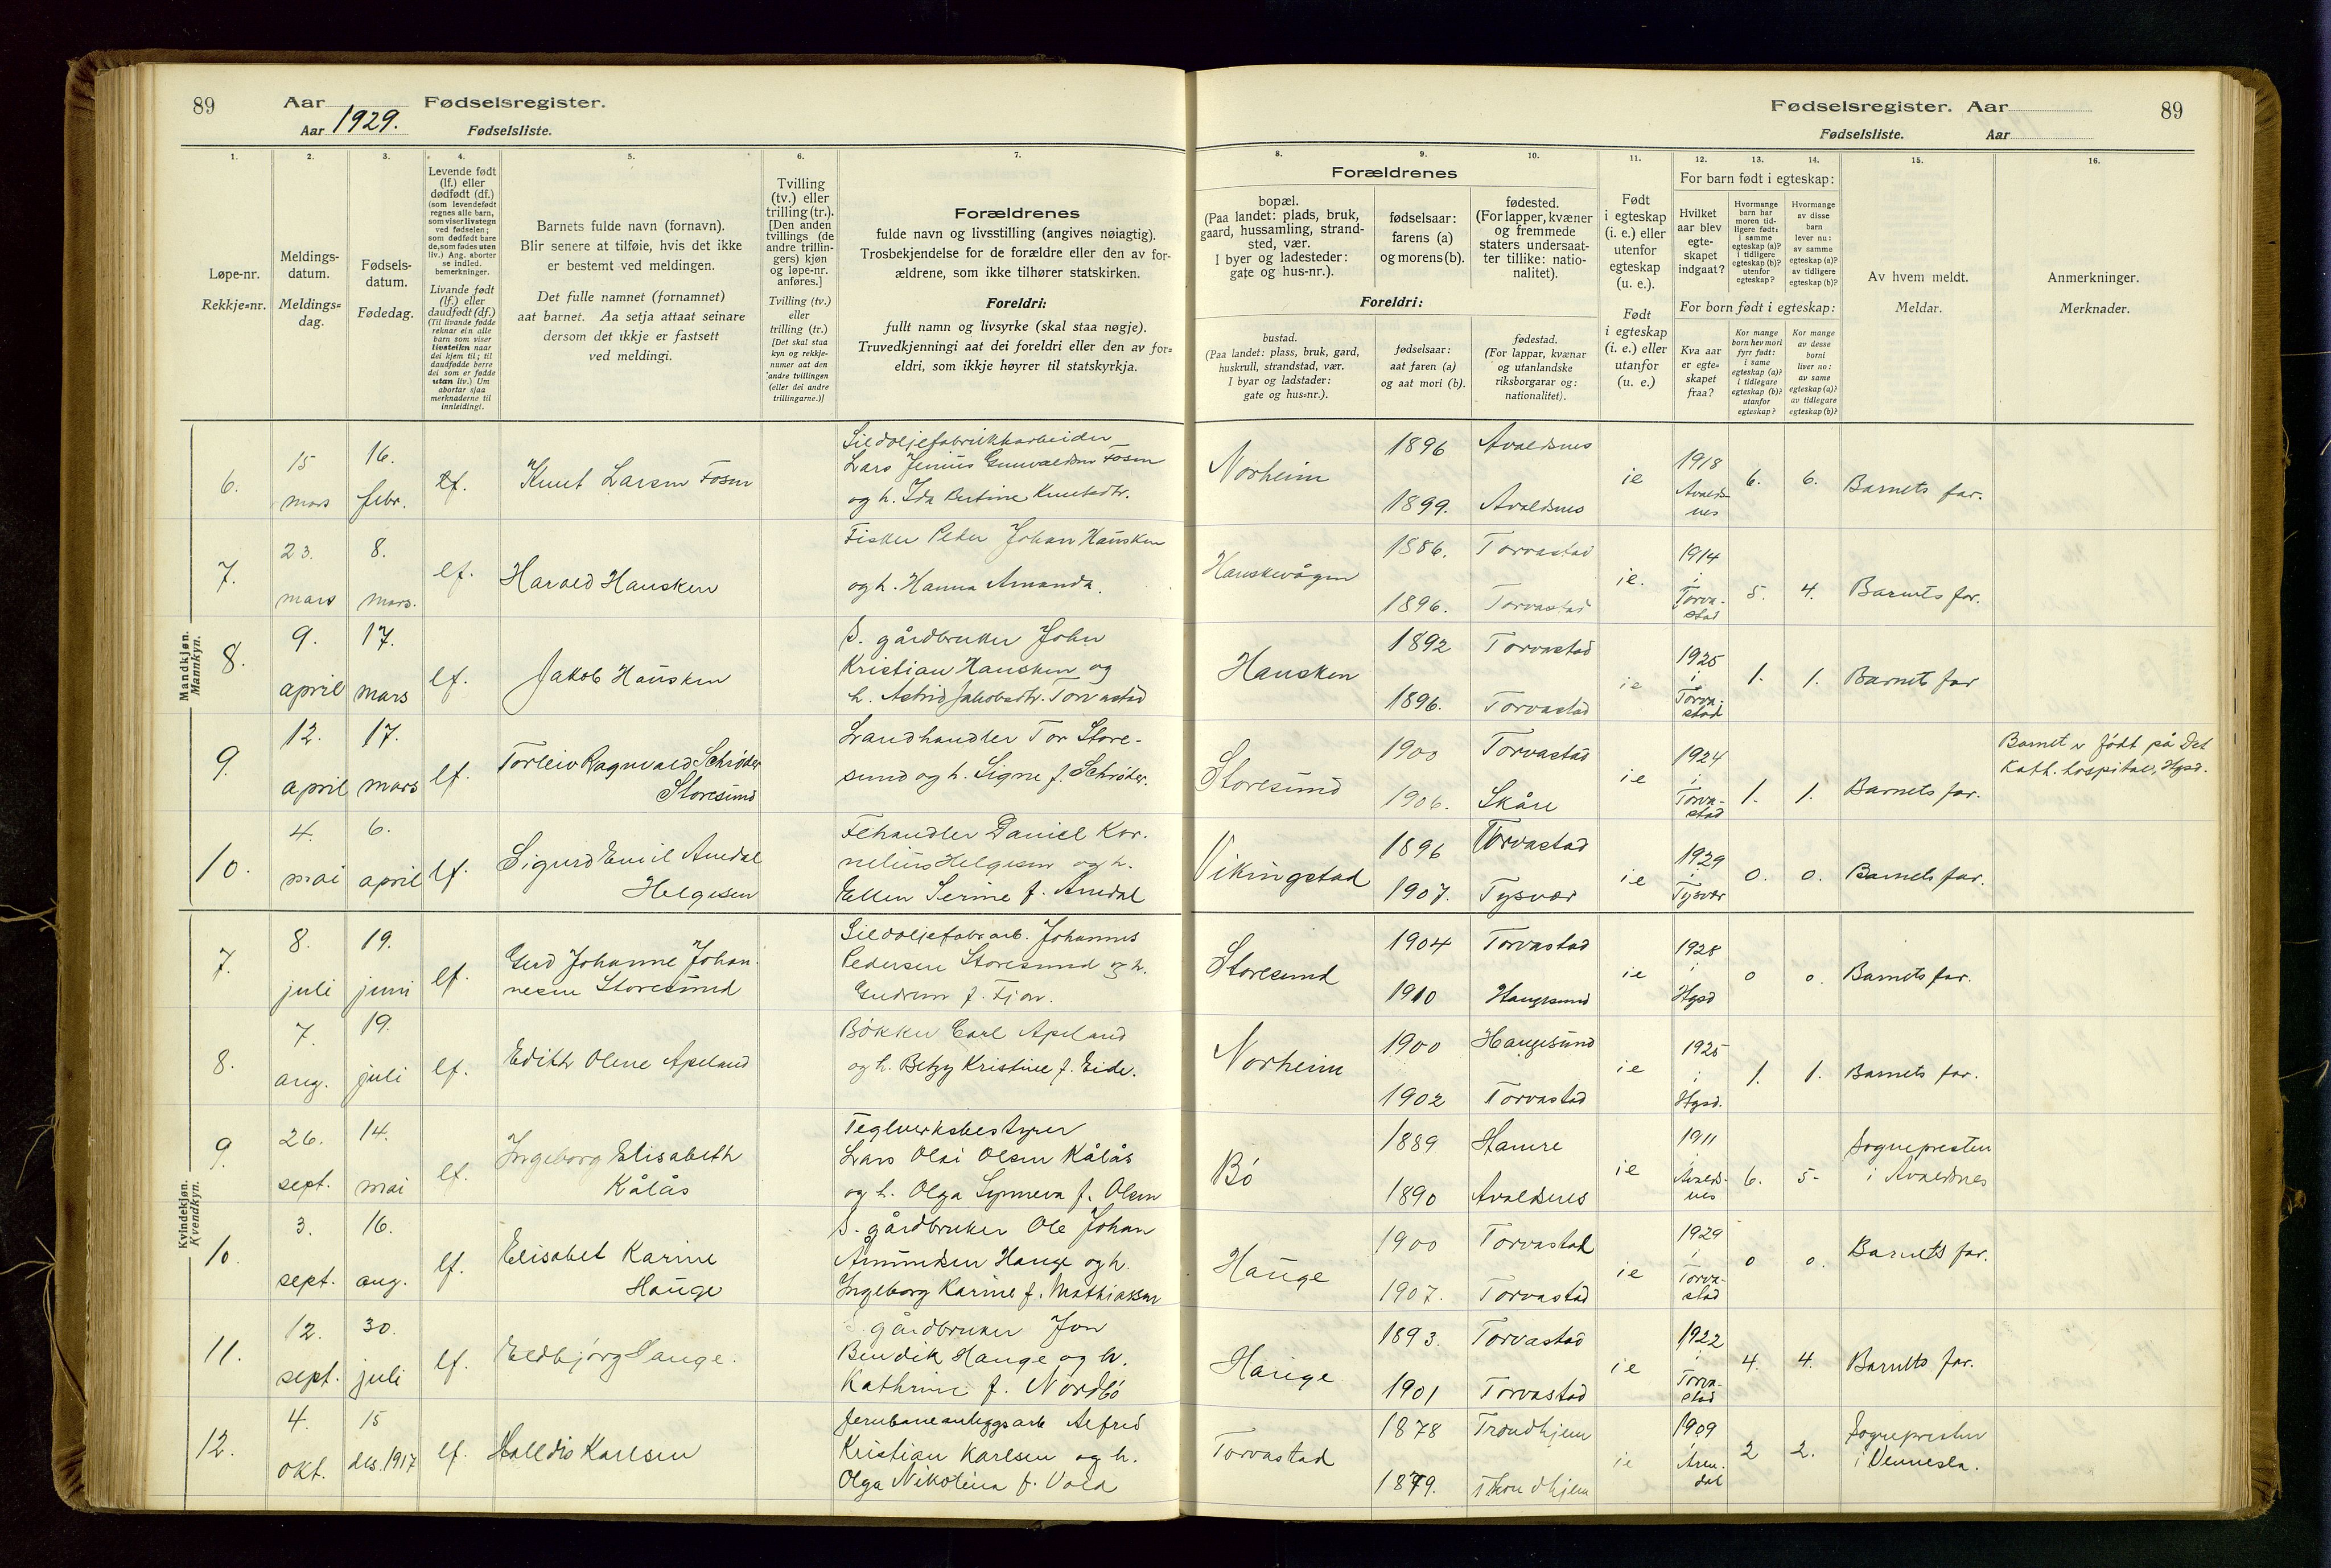 89
Aar
Fødselsregister.
Aar 1929.
Fødselsliste.
Fødselsregister. Aar
89
Fødselsliste.
Aar
1.
Løpe-nr.
Rekkje=nr.
2.
Meldings-
datum.
Meldings=
dag.
3.
Fødsels-
datum.
Fødedag.
4.
Levende født
(lf.) eller
dødfødt (df.)
(som levendefødt
regnes alle barn,
som viser livstegn
ved fødselen;
som dødfødt bare
de, som fødes uten
liv.) Ang. aborter
se indled.
bemerkninger.
Livande født
(lf.) eller
daudfødt (df.)
(Til livande fødde
reknar ein alle
barn som viser
livsteikn naar
dei kjem til; til
daudfødde berre
dei som er fødde
utan liv.) Um
abortar sjaa
merknaderne til
innleidingi.
5.
Barnets fulde navn (fornavn).
Blir senere at tilføie, hvis det ikke
er bestemt ved meldingen.
Det fulle namnet (fornamnet)
aat barnet. Aa setja attaat seinare
dersom det ikkje er fastsett
ved meldingi.
6.
Tvilling
(tv.) eller
trilling (tr.).
[Den anden
tvillings (de
andre trillin-
gers) kjøn
og løpe-nr.
anføres.]
Tvilling (tv.)
eller
trilling (tr.)
[Det skal staa
kyn og rekkje-
numer aat den
andre tvillingen
(eller dei andre
trillingarne.)]
7.
Forældrenes
fulde navn og livsstilling (angives nøiagtig).
Trosbekjendelse for de forældre eller den av for-
ældrene, som ikke tilhører statskirken.
Foreldri:
fullt namn og livsyrke (skal staa nøgje).
Truvedkjenningi aat dei foreldri eller den av for=
eldri, som ikkje høyrer til statskyrkja.
8.
Forældrenes
bopæl.
(Paa landet: plads, bruk,
gaard, hussamling, strand-
sted, vær.
I byer og ladesteder:
gate og hus-nr.).
Foreldri:
bustad.
(Paa landet: plass, bruk, gard,
huskrull, strandstad, vær.
I byar og ladstader:
gate og hus=nr.).
9.
fødselsaar:
farens (a)
og morens (b).
fødselsaar:
aat faren (a)
og aat mori (b).
10.
fødested.
(For lapper, kvæner
og fremmede
staters undersaat-
ter tillike: natio-
nalitet).
fødestad.
(For lappar, kvænar
og utanlandske
riksborgarar og:
nationalitet).
11.
Født
i egteskap
(i. e.) eller
utenfor
egteskap
(u. e.).
Født
i egteskap
(i. e.) eller
utanfor
(u. e.)
12.
13.
14.
For barn født i egteskap:
Hvilket
aar blev
egte-
skapet
indgaat?
Hvormange
barn har
moren tid-
ligere født:
i samme
egteskap (a)?
i tidligere
egteskap (b)?
utenfor
egteskap?
Hvormange
av disse
barn
lever nu:
av samme
egteskap (a)?
av tidligere
egteskap (b)?
For born født i egteskap:
Kva aar
er egte=
skapet
fraa?
Kor mange
born hev mori
fyrr født:
i same
egteskap (a)?
i tidlegare
egteskap (b)?
utanfor
egteskap?
Kor mange
av desse
borni
liver no:
av same
egteskap (a)?
av tidlegare
egteskap (b)?
15.
Av hvem meldt.
Meldar.
16.
Anmerkninger.
Merknader.
Mandkjøn.
Mannkyn.
6.
15
mars
16.
febr.
lf.
Knut Larsen Fosen
Sildoljefabrikkarbeider
Lars Jenius Gunvaldsen Fosen
og h. Ida Bertine Knutsdtr.
Norheim
1896
1899.
Avaldsnes
Avaldsnes
ie
1918
Avalds-
nes
6.
6.
Barnets far.
7.
23.
mars
8.
mars.
lf.
Harald Hausken
Fisker Peder Johan Hausken
og h. Hanna Amanda.
Hauskevågen
1886.
1896.
Torvastad
Torvastad
ie.
1914
i
Torva-
stad
5.
4.
Barnets far.
8.
9.
april
17.
mars
lf.
Jakob Hausken
S. gårdbruker John
Kristian Hausken og
h. Astrid Jakobsdtr. Torvastad
Hausken
1892
1896.
Torvastad
Torvastad
ie
1925
i
Torva-
stad
1.
1.
Barnets far
9.
12.
april
17.
mars
lf.
Torleiv Ragnvald Schrøder
Storesund
Landhandler Tor Store-
sund og h. Signe f. Schrøder.
Storesund
1900
1906.
Torvastad
Skåre
ie
1924
i
Torva-
stad
1.
1.
Barnets far.
Barnet er født på Det
Kath. hospital, Hgsd.
10.
4.
mai
6.
april
lf.
Sigurd Emil Amdal
Helgesen
Fehandler Daniel Kor-
nelius Helgesen og h.
Ellen Serine f. Amdal
Vikingstad
1896
1907.
Torvastad
Tysvær
ie
1929
i
Tysvær
0.
0.
Barnets far.
Kvindekjøn.
Kvendkyn.
7.
8.
juli
19.
juni
lf.
Gerd Johanne Johan-
nesen Storesund
Sildoljefabr.arb. Johannes
Pedersen Storesund og h.
Gudrun f. Fjon.
Storesund
1904
1910
Torvastad
Haugesund
ie
1928
i
Hgsd
0
0.
Barnets far.
8.
7.
aug.
19.
juli
lf.
Edith Olene Apeland
Bøkker Carl Apeland
og h. Betzy Kristine f. Eide.
Norheim
1900
1902
Haugesund
Torvastad
ie
1925
i
Hgsd.
1.
1.
Barnets far.
9.
26.
sept.
14.
mai
lf.
Ingeborg Elisabeth
Kålås
Teglverksbestyrer
Lars Olai Olsen Kålås
og h. Olga Synneva f. Olsen
Bö
1889
1890
Hamre
Avaldsnes
ie
1911
Avalds-
nes
6.
5-
Sognepresten
i Avaldsnes
10.
3.
sept.
16.
aug.
lf.
Elisabet Karine
Hauge
S. gårdbruker Ole Johan
Amundsen Hauge og h.
Ingeborg Karine f. Mathiassen
Hauge
1900
1907.
Torvastad
Torvastad
ie
1929
i
Torva-
stad
0
0.
Barnets far.
11.
12.
sept.
30.
juli
lf.
Eldbjørg Hauge.
S gårdbruker Jon
Bendik Hauge og h.
Kathrine f. Nordbö
Hauge
1893.
1901
Torvastad
Torvastad
ie
1922
i
Torva-
stad
4.
4.
Barnets far.
12.
4.
okt.
15
des. 1917
lf.
Halldis Karlsen
Jernbaneanleggsarb Alfred
Kristian Karlsen og h.
Olga Nikoline f. Vold
Torvastad
1878
1879.
Trondhjem
Trondhjem
ie
1909
i
Aren-
dal
2
2.
Sognepresten
i Vennesla.